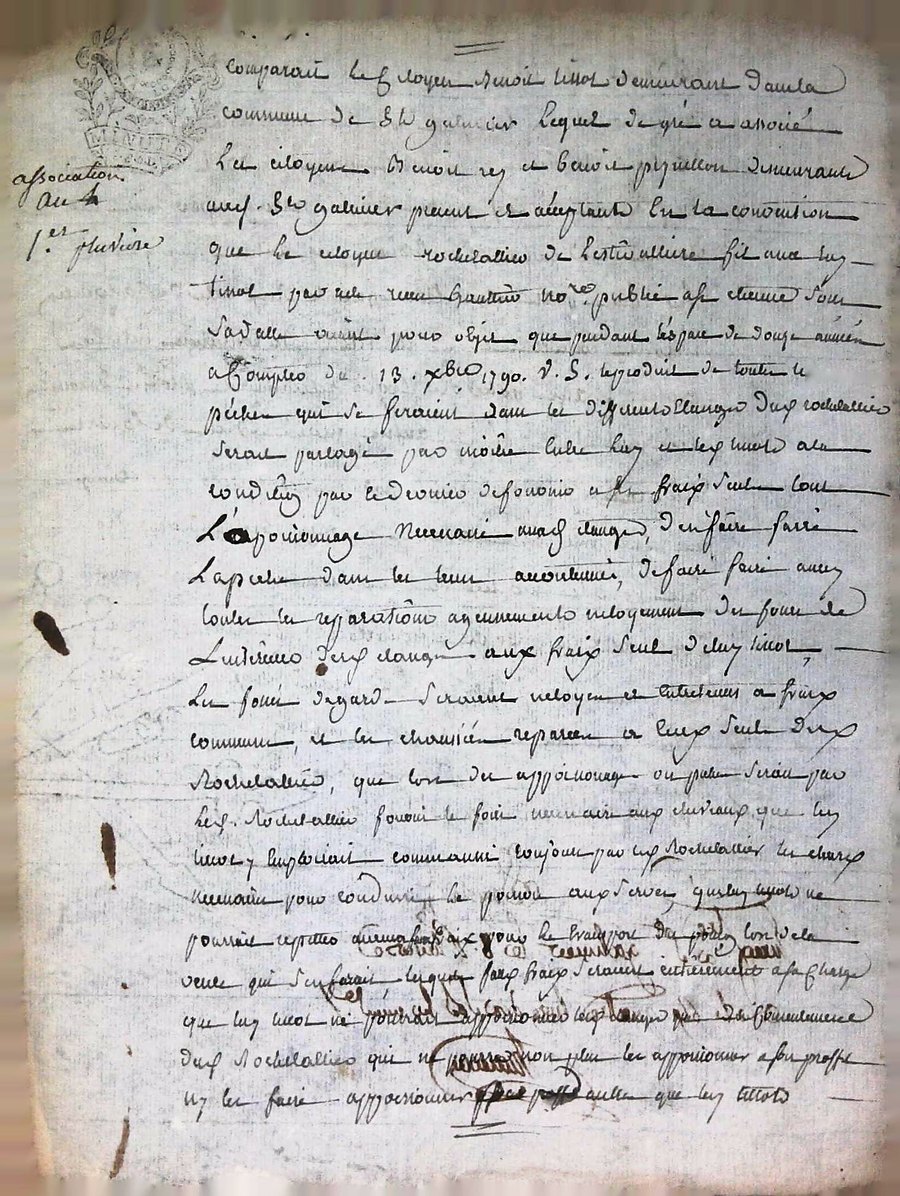 MINUTE
association
du 4
1.er pluviose
Comparait le Citoyen Benoit tissot demeurant dans la
commune de St galmier lequel de gré a associé
Les citoyens Benoit rey et benoit demeurants
aud. St galmier present et acceptants En la convention
que le citoyen rochetaillier de fit avec luy
tissot par acte recu no.re public a St etienne Sous
Sa datte aiant pour objet que pendant l'espace de douze années
a Compter du 13. Xbre 1790. V. S. le produit de toutes les
péches qui se feraient dans les differents Etangs dud. rochetaillier
serait partagé par moitié Entre luy et led. tissot a la
condition par ce dernier de fournir a ses fraix seul tout
L'apoissonnage Necessaire auxd. étangs, d'en faire faire
La peche dans les tems accoutumés, de faire faire aussy
toutes les reparations agencements netoyement des fosses de
L'interieur desd. étangs aux fraix seul deluy tissot,
Les fossés de garde seraient netoyés et Entretenus a fraix
communs, et les chaussées reparées a ceux seuls dud.
Rochetaillier, que lors des appoissonages ou peche serait par
led. Rochetaillier fourni le foin necessaire aux chevaux que luy
tissot y Employerait comme aussi toujours par led. Rochetaillier les chars
necessaires pour conduire le poisson aux serves que luy tissot ne
pourrait repetter aucuns fraix pour le transport du poisson lors de la
vente qui s'en ferait lesquels fraix seraient entièrement a sa Charge
que luy tissot ne pourrait appoissonner lesd. étangs
dud. Rochetaillier qui ne pourra non plus les appoissonner a son proffit
ny les faire appoissonner par autre que luy tissot